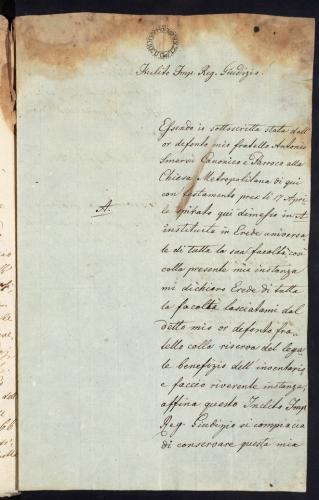 Inclito Imp. Reg. Giudizio.
Essendo io sottoscritta stata dall
or defonto mio fratello Antonio
Canonico e Parroco alla
Chiesa Metropolitana di qui
con testamento pres: li 17 Apri
le spirato qui dimesso in A
A.
instituita in Erede universa
le di tutta la sua facoltà, con
colla presente mia instanza
mi dichiaro Erede di tutta
la facoltà lasciatami dal
detto mio or defonto fra
tello colla riserva del lega
le benefizio dell'inventario
e faccio riverente instanza,
affina questo Inclito Imp.
Reg. Giudizio si compiaccia
di conservare questa mia